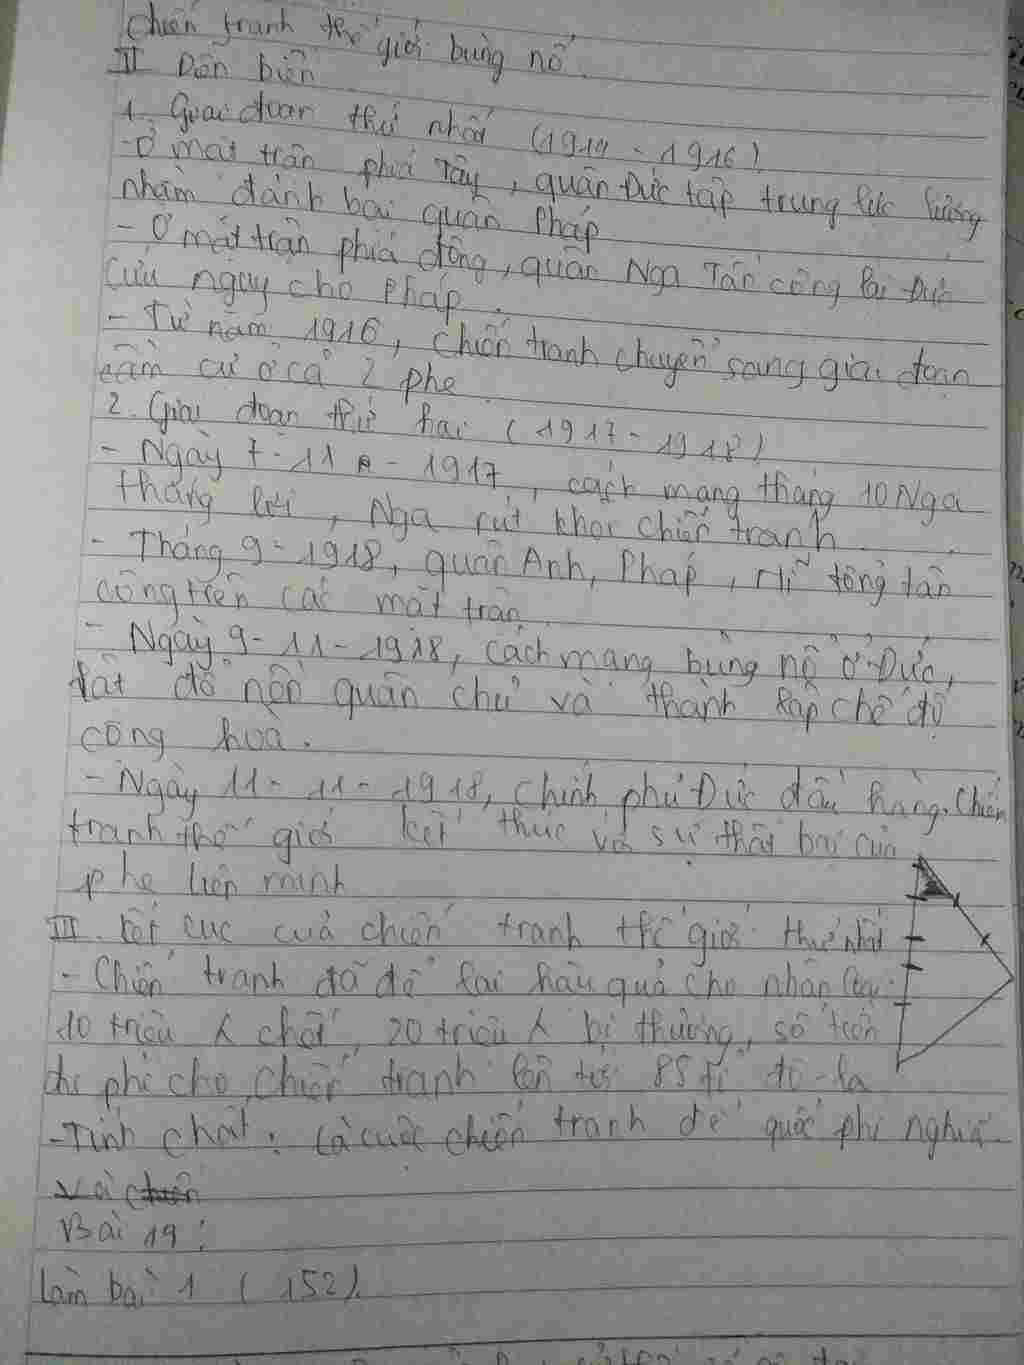 chiến tranh thế giới bùng nổ.
II Diễn biến
1. Giai đoạn thứ nhất (1914 - 1916)
- Ở mặt trận phía Tây, quân Đức tập trung lực lượng
nhằm đánh bại quân Pháp
- Ở mặt trận phía đông, quân Nga Tấn công lại Đức
cứu nguy cho Pháp.
- Từ năm 1916, chiến tranh chuyển sang giai đoạn
cầm cự ở cả 2 phe
2. Giai đoạn thứ hai (1917 - 1918)
- Ngày 7 - 11 - 1917, cách mạng tháng 10 Nga
thắng lợi, Nga rút khỏi chiến tranh.
- Tháng 9 - 1918, quân Anh, Pháp, Mĩ tổng tấn
công trên các mặt trận
- Ngày 9 - 11 - 1918, cách mạng bùng nổ ở Đức,
lật đổ nền quân chủ và thành lập chế độ
cộng hoà.
- Ngày 11 - 11 - 1918, Chính phủ Đức đầu hàng. Chiến
tranh thế giới kết thúc với sự thất bại của
phe liên minh
III. Kết cục của chiến tranh thế giới thứ nhất
- Chiến tranh đã để lại hậu quả cho nhân loại:
10 triệu chết, 20 triệu bị thương, số tiền
chi phí cho chiến tranh lên tới 85 tỉ đô-la
- Tính chất: Là cuộc chiến tranh đế quốc phi nghĩa
và chiến
Bài 19:
Làm bài 1 (152).